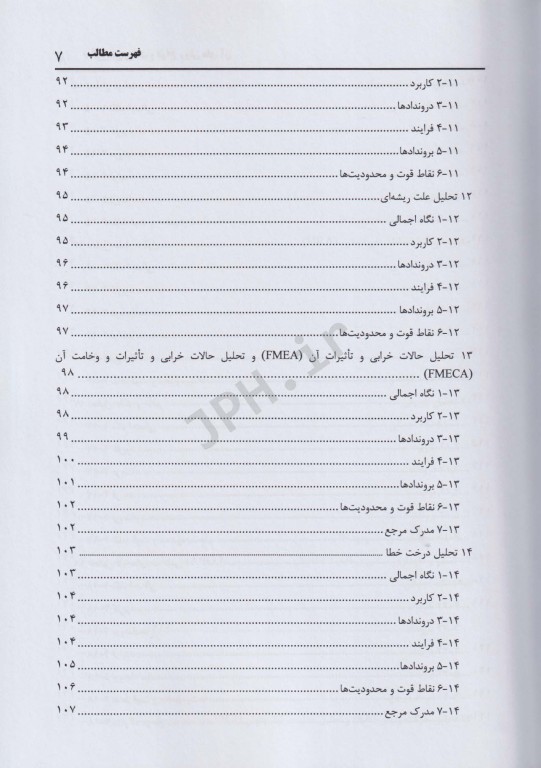 فهرست مطالب ۷
۱۱-۲ کاربرد ۹۲
۱۱-۳ دروندادها ۹۲
۱۱-۴ فرایند ۹۳
۱۱-۵ بروندادها ۹۴
۱۱-۶ نقاط قوت و محدودیت‌ها ۹۴
۱۲ تحلیل علت ریشه‌ای ۹۵
۱۲-۱ نگاه اجمالی ۹۵
۱۲-۲ کاربرد ۹۵
۱۲-۳ دروندادها ۹۶
۱۲-۴ فرایند ۹۶
۱۲-۵ بروندادها ۹۷
۱۲-۶ نقاط قوت و محدودیت‌ها ۹۷
۱۳ تحلیل حالات خرابی و تأثیرات آن (FMEA) و تحلیل حالات خرابی و تأثیرات و وخامت آن
(FMECA) ۹۸
۱۳-۱ نگاه اجمالی ۹۸
۱۳-۲ کاربرد ۹۸
۱۳-۳ دروندادها ۹۹
۱۳-۴ فرایند ۱۰۰
۱۳-۵ بروندادها ۱۰۱
۱۳-۶ نقاط قوت و محدودیت‌ها ۱۰۲
۱۳-۷ مدرک مرجع ۱۰۲
۱۴ تحلیل درخت خطا ۱۰۳
۱۴-۱ نگاه اجمالی ۱۰۳
۱۴-۲ کاربرد ۱۰۴
۱۴-۳ دروندادها ۱۰۴
۱۴-۴ فرایند ۱۰۴
۱۴-۵ بروندادها ۱۰۵
۱۴-۶ نقاط قوت و محدودیت‌ها ۱۰۶
۱۴-۷ مدرک مرجع ۱۰۷
JPH.ir